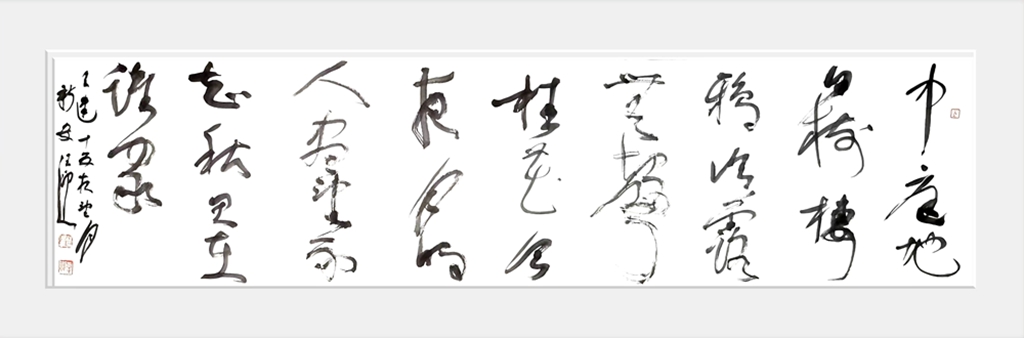 中庭地
白樹棲
鴉冷露
無聲
桂花今
夜月明
人盡望不
知秋思在
誰家
王建十五夜望月